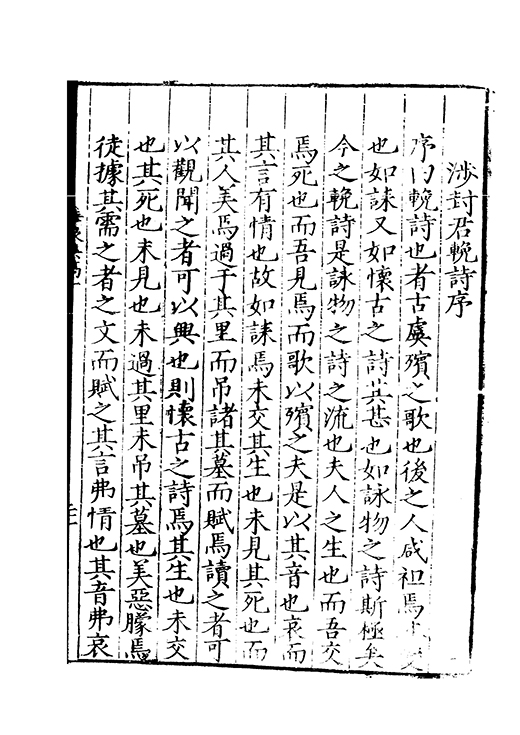 涉封君輓詩序
序曰輓詩也者古虞殯之歌也後之人咸祖焉
也如誄又如懷古之詩其甚也如詠物之詩斯極矣
今之輓詩是詠物之詩之流也夫人之生也而吾交
焉死也而吾見焉而歌以殯之夫是以其音也哀而
其言有情也故如誄焉未交其生也未見其死也而
其人美焉過于其里而吊諸其墓而賦焉讀之者可
以觀聞之者可以興也則懷古之詩焉其生也未交
也其死也未見也未過其里未吊其墓也美惡矇焉
徒據其需之者之文而賦之其言弗情也其音弗哀